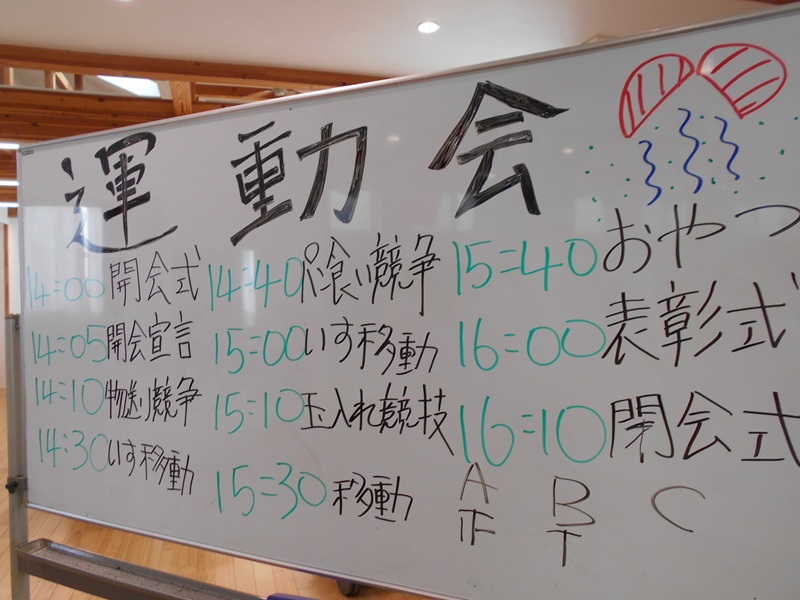 運動会
14:00 開会式
14:05 開会宣言
14:10 物送り競争
14:30 いす移動
14:40 パン喰い競争
15:00 いす移動
15:10 玉入れ競技
15:30 移動
15:40 おやつ
16:00 表彰式
16:10 閉会式
A B C
正 T